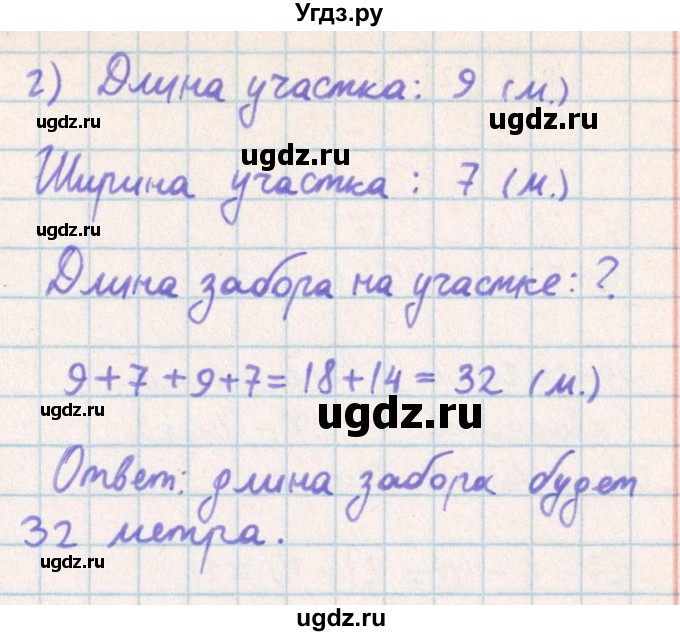 Угдз.ру
г) Длина участка: 9 (м.)
ugdz.ru
ugdz.ru
ugdz.ru
Ширина участка: 7 (м.)
ugdz.ru
Длина забора на участке: ?
9+7+9+7=18+14=32 (м.)
ugdz.ru
ugdz.ru
Ответ: длина забора будет
32 метра.
ugdz.ru
ugdz.ru
ugdz.ru